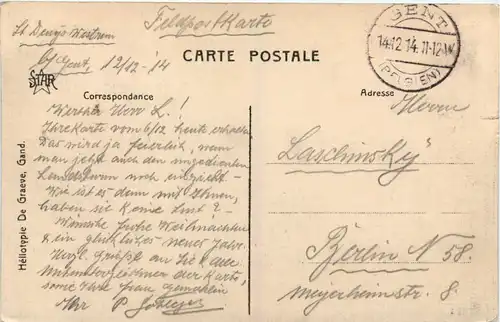 St Denijs Westrem
Feldpostkarte
b/Gent, 12/12 - 14
STAR
CARTE POSTALE
GENT
14.12.14.11-12V
(BELGIEN)
Correspondance
Adresse
Werther Herr L.!
Ihre Karte vom 6/12 heute erhalten
Das wird ja feierlich, wenn
man jetzt auch den ungedienten
Landsturm noch einzieht -
Wie ist es denn mit Ihnen,
haben sie keine Lust? -
Wünsche frohe Weihnachten
& ein glückliches neues Jahr.
Herzl. Grüße an Sie & alle
Mitunterzeichner der Karte,
sowie Ihre Frau Gemahlin
Ihr P.
Herrn
Laschinsky
Berlin N 58.
Meyerheimstr. 8
Héliotypie De Graeve, Gand.